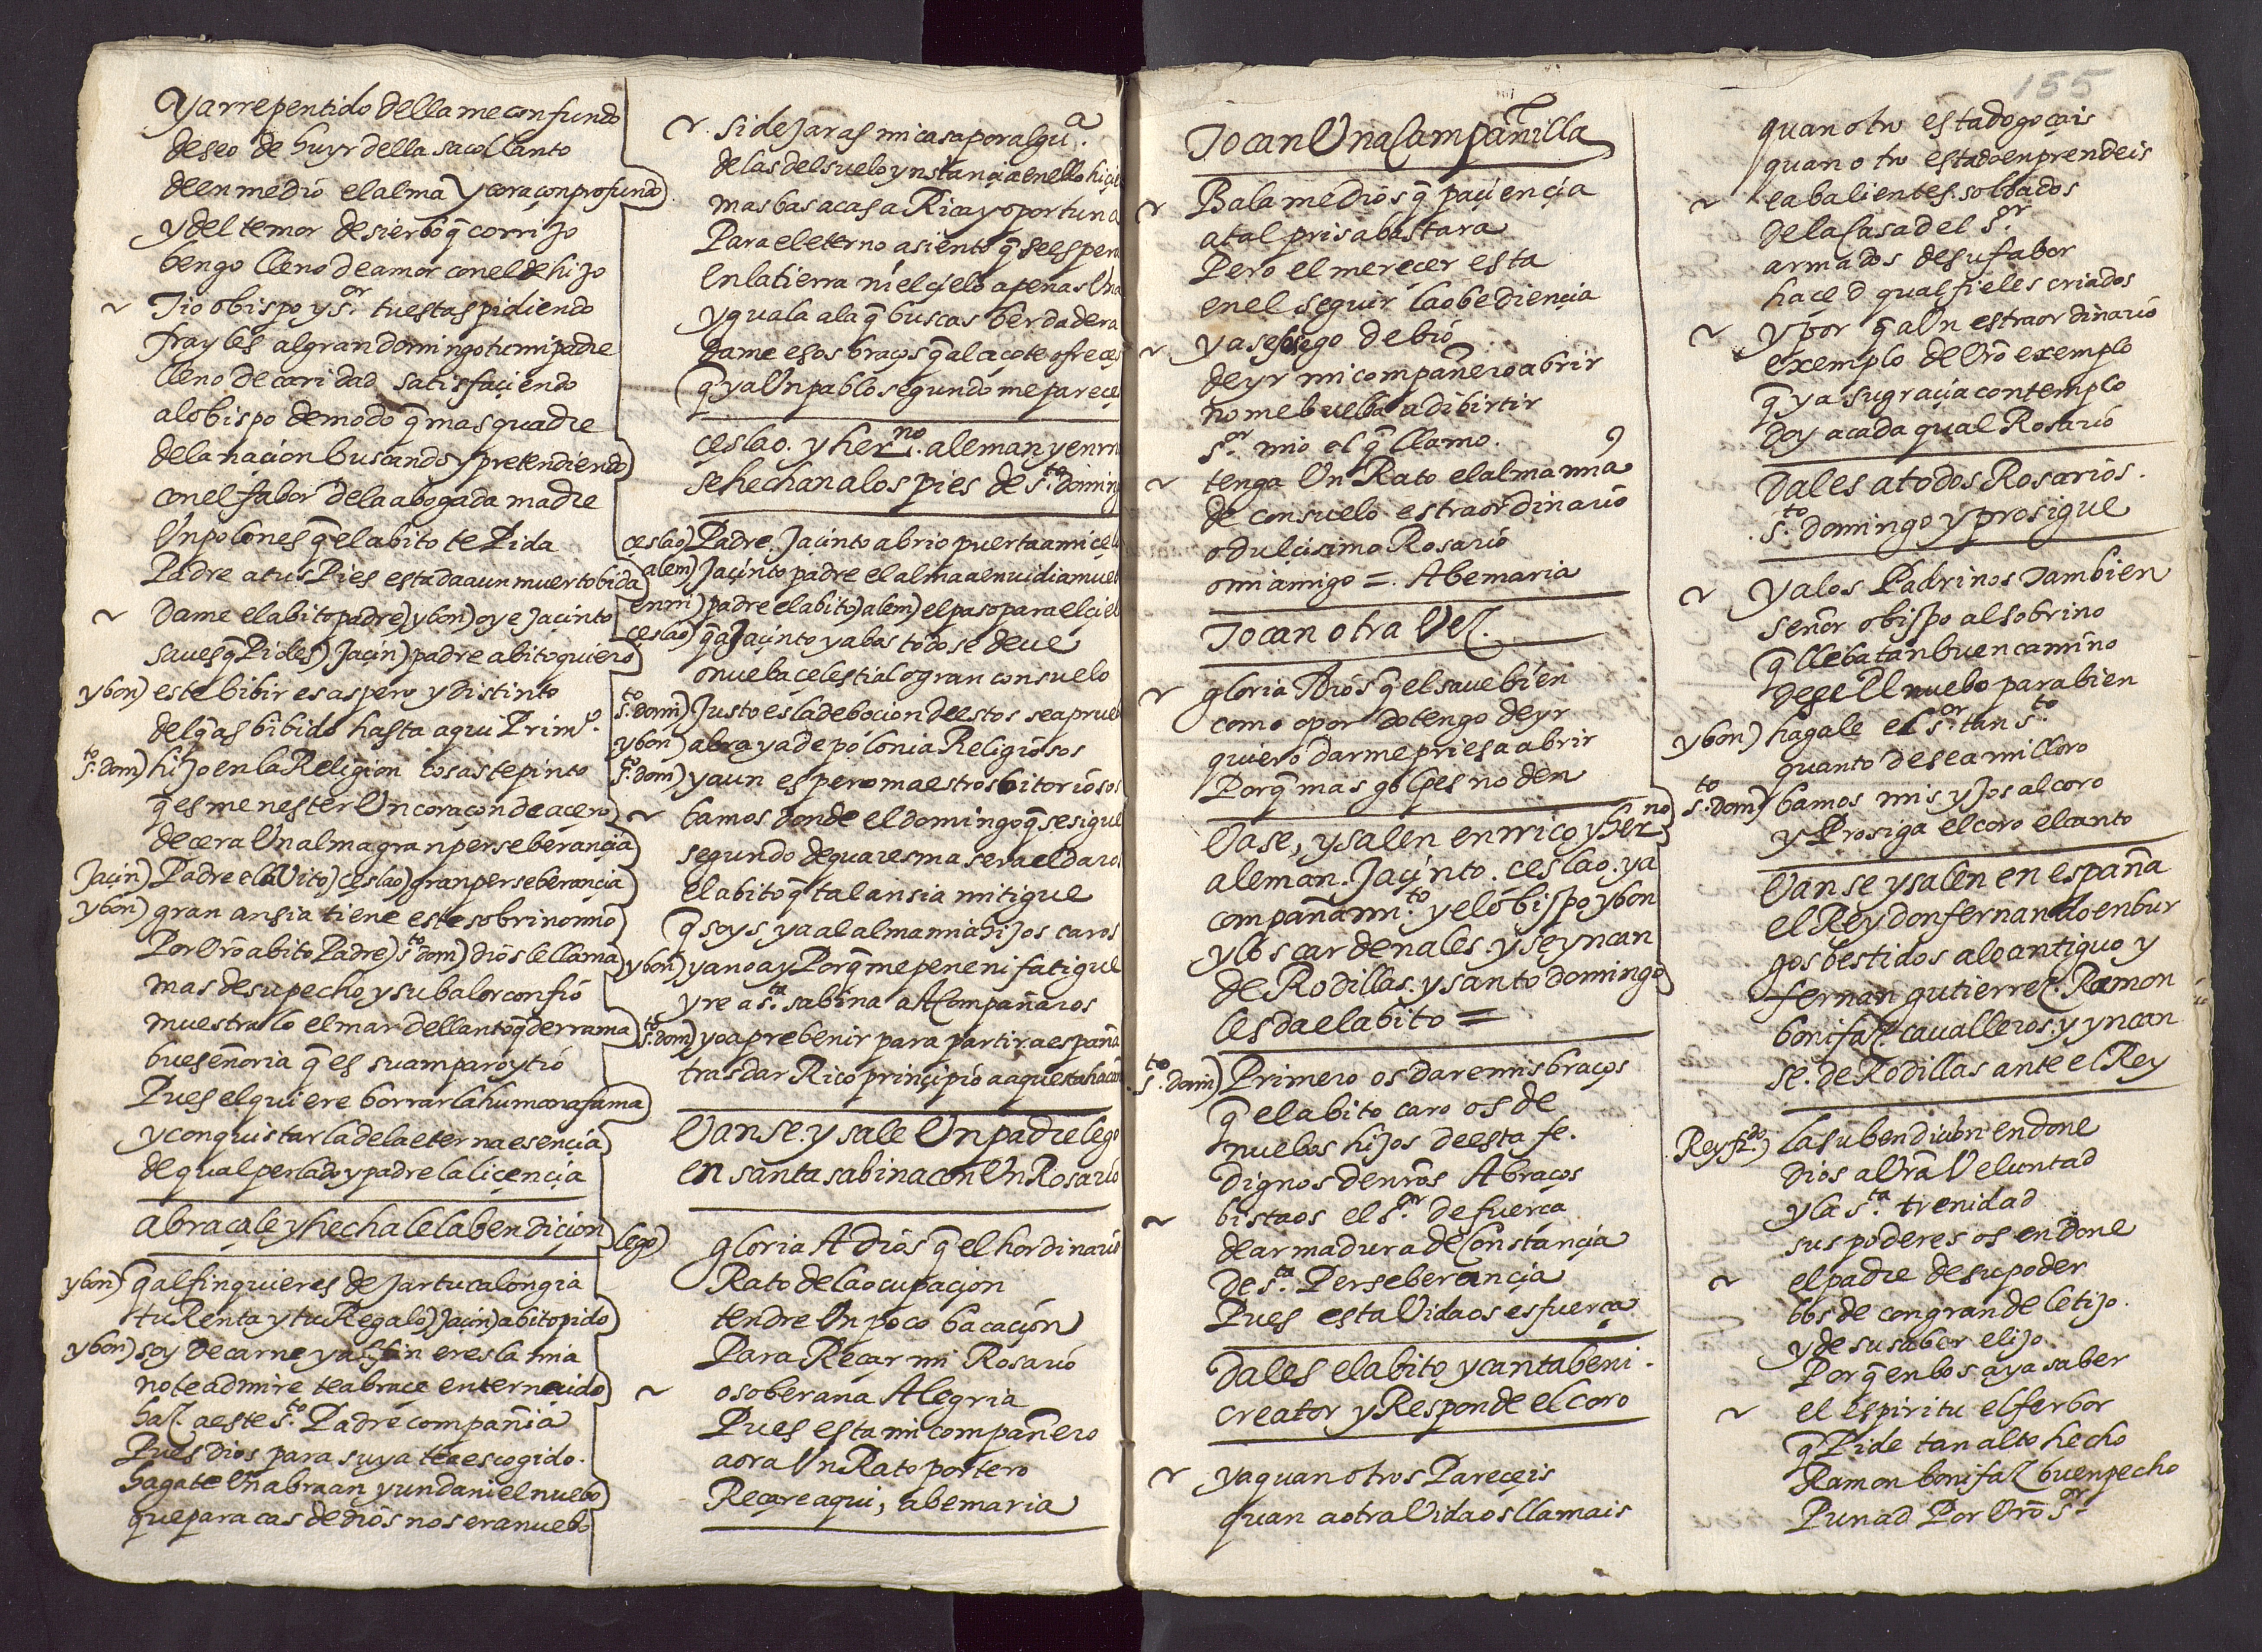 y arrepentido della me confundo
deseo de huyr della saco llanto
de en medio el alma y coraçon profundo
y del temor de sierbo q̃ corrijo
bengo lleno de amor con el de hijo
~ Tio obispo y s.or tu estas pidiendo
frayles al gran domingo tu mi padre
lleno de caridad satisfaçiendo
al obispo de modo q̃ mas quadre
de la naçion buscando y pretendiendo
con el fabor de la abogada madre
Un polones q̃ el abito te Pida
Padre a tus Pies esta da a un muerto bida
~ Dame el abito padre) ybon) oye Jaçinto
saues q̃ Pides) Jaçin) padre abito quiero
ybon) este bibir es aspero y distinto
del q̃ as bibido hasta aqui Prim.o
s.to dom) hijo en la Religion cosas te pinto
q̃ es menester Un coraçon de açero
de cera Un alma gran perseberançia
Jaçin) Padre el abito) ceslao) gran perseberançia
ybon) gran ansia tiene este sobrino mio
Por Vr̃o abito Padre) s.to dom) dios le llama
mas de su pecho y su balor confio
muestralo el mar del llanto q̃ derrama
bueseñoria q̃ es su amparo y tio
Pues el quiere borrar la humana fama
y conquistar la de la eterna esençia
de qual perlado y padre la liçençia
abraçale y hechale la bendiçion
ybon) q̃ al fin quieres dejar tu calongia
tu Renta y tu Regalo) Jaçin) abito pido
ybon) soy de carne y al fin eres la mia
no te admire te abraçe enterneçido
haz a este s.to Padre compañia
Pues dios para suya te a escogido.
hagate Un abraan y un daniel nuebo
que para cas de dios no sera nuebo
~ si dejaras mi casa por algu.a
de las del suelo ynstançia en ello hiçie
mas bas a casa Rica y oportuna
Para el eterno asiento q̃ se espera
En la tierra ni el çielo apenas Una
yguala a la q̃ buscas berdadera
dame esos braços q̃ al açote ofreces
q̃ ya Un pablo segundo me pareçes
çeslao. y her.no aleman y enrri
se hechan a los pies de s.to doming
çeslao) Padre. Jaçinto abrio puerta a mi çelo
alem) Jaçinto padre el alma a enuidia mueb
enrri) padre el abito) alem) el paso para el çiel
çeslao) q̃ a Jaçinto y a bos todo se deue
o nueba çelestial o gran consuelo
s.to dom) Justo es la deboçion de estos se aprueb
ybon) abra ya de polonia Religiosos
s.to dom) y aun espero maestros bitoriosos
~ bamos donde el domingo q̃ se sigue
segundo de quaresma sera el daros
el abito q̃ tal ansia mitigue
q̃ soys ya al alma mia hijos caros
ybon) ya no ay Porq̃ me pene ni fatigue
yre a s.ta sabina a Acompañaros
s.to dom) yo a prebenir para partir a españa
tras dar Rico prinçipio a aquesta haçañ
Vanse. y sale Un padre lego
en santa sabina con Un Rosario
lego) gloria A dios q̃ el hordinario
Rato de la ocupaçion
tendre Un poco bacaçion
Para Reçar mi Rosario
~ o soberana Alegria
Pues esta mi compañero
aora Un Rato portero
Reçare aqui, abemaria
155
Tocan Una Campanilla
~ Balame dios q̃ paçiençia
a tal prisa bastara
Pero el mereçer esta
en el seguir la obediençia
~ y a sosiego debio
de yr mi compañero abrir
no me buelba a dibirtir
s.or mio el q̃ llamo.
~ tenga Un Rato el alma mia
de consuelo estraordinario
o dulçisimo Rosario
o mi amigo =. Abemaria
Tocan otra Vez.
~ gloria A dios q̃ el saue bien
como o por do tengo de yr
quiero darme priesa abrir
Porq̃ mas golpes no den
Vase, y salen enrrico y her.no
aleman. Jaçinto. ceslao. y a
compañam.to y el obispo ybon
y los cardenales. y se yncan
de Rodillas. y santo domingo
les da el abito =
s.to dom) Primero os dare mis braços
q̃ el abito caro os de
nuebos hijos de esta fe.
dignos de nr̃os Abraços
~ bistaos el s.or de fuerça
de armadura de Constançia
de s.ta Perseberançia
Pues esta Vida os esfuerça
Dales el abito y canta beni.
creator y Responde el coro
~ ya quan otros Pareçeis
quan a otra Vida os llamais
quan otro estado goçais
quan otro estado enprendeis
~ ea balientes soldados
de la Casa del s.or
armados de su fabor
haçed qual fieles criados
~ y por q̃ a Un estraordinario
exemplo de Vr̃o exemplo
q̃ ya su graçia contemplo
doy a cada qual Rosario
Dales a todos Rosarios.
s.to domingo y prosigue
~ y a los Padrinos Tambien
señor obispo al sobrino
q̃ lleba tan buen camino
dese El nuebo parabien
ybon) hagale el s.or tan s.to
quanto desea mi lloro
s.to dom) bamos mis yjos al coro
y Prosiga el coro el canto
Vanse y salen en españa
el Rey don fernando en bur
gos bestidos a lo antiguo y
fernan gutierrez. Ramon
bonifaz. caualleros. y yncan
se. de Rodillas ante el Rey
Rey f.do) la su bendiçion endone
dios a Vr̃a Veluntad
y la s.ta trenidad
sus poderes os endone
~ el padre de su poder
bos de con grande letijo.
y de su saber el ijo
Porq̃ en bos aya saber
~ el espiritu el ferbor
q̃ Pide tan alto hecho
Ramon bonifaz buen pecho
Punad Por Vr̃o s.or